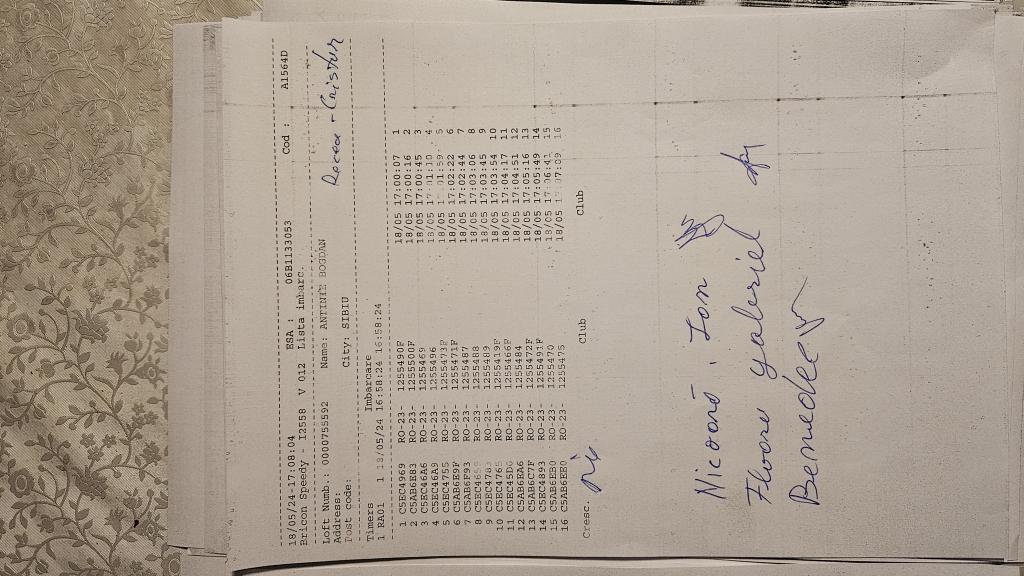 18/05/24-17:08:04 BSA : 06B1133053 Cod : A1564D
Bricon Speedy - I2558 V 012 Lista imbarc.
Loft Numb.: 0000755592 Name: ANTINIE BOGDAN
Address:
Post Code: City: SIBIU
Recea - Cristur
Timers Imbarcare
1 RA01 1 18/05/24 16:58:24 16:58:24
1 C5EC4969 RO-23- 1255490F 18/05 17:00:07 1
2 C5AB6E83 RO-23- 1255500F 18/05 17:00:16 2
3 C5EC46A6 RO-23- 1255469 18/05 17:00:45 3
4 C5EC46A9 RO-23- 1255496 18/05 17:01:10 4
5 C5EC4755 RO-23- 1255473F 18/05 17:01:59 5
6 C5AB6E9F RO-23- 1255471F 18/05 17:02:22 6
7 C5AB6F93 RO-23- 1255487 18/05 17:02:44 7
8 RO-23- 1255488 18/05 17:03:06 8
9 RO-23- 1255489 18/05 17:03:45 9
10 C5EC4765 RO-23- 1255419F 18/05 17:03:54 10
11 C5EC45D0 RO-23- 1255466F 18/05 17:04:17 11
12 C5AB6EA6 RO-23- 1255484 18/05 17:04:51 12
13 C5AB6C7F RO-23- 1255472F 18/05 17:05:16 13
14 C5EC4893 RO-23- 1255491F 18/05 17:05:49 14
15 C5AB6EB0 RO-23- 1255470 18/05 17:06:41 15
16 C5AB6EE0 RO-23- 1255475 18/05 17:07:09 16
Cresc. Club Club
Nicoară Ion
Floare Gabriel